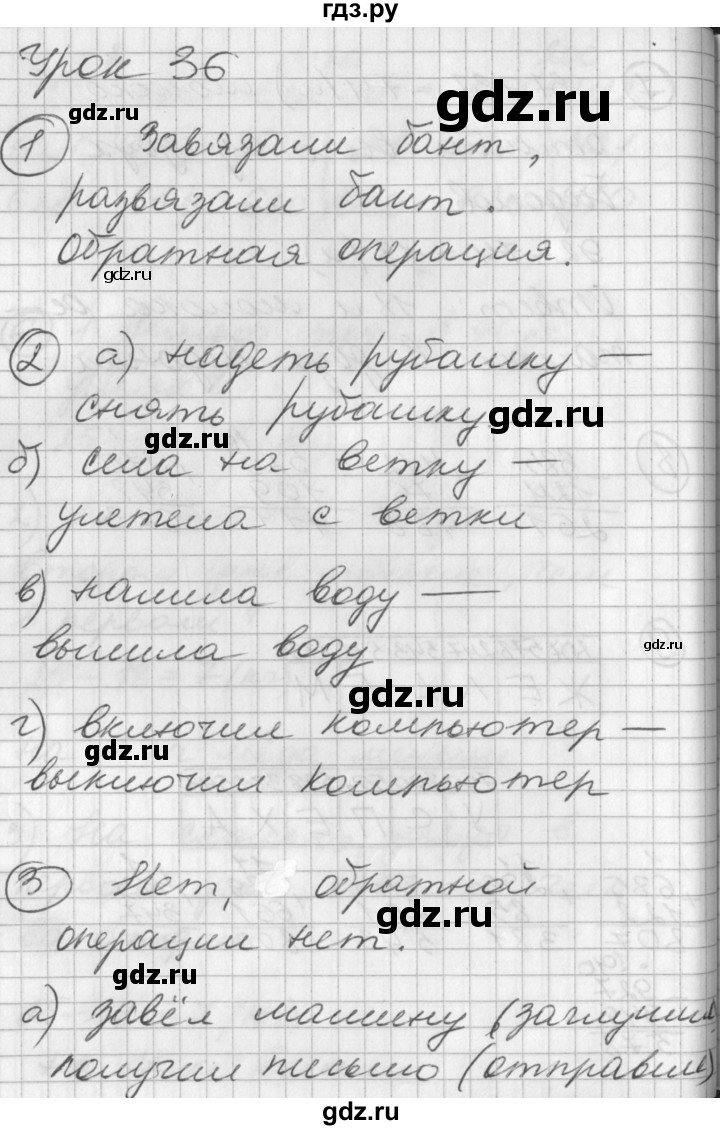 гдз.ру
Урок 36
gdz.ru
gdz.ru
1 Завязали бант,
развязали бант.
gdz.ru
Обратная операция.
gdz.ru
2 а) надеть рубашку —
снять рубашку
gdz.ru
gdz.ru
б) села на ветку —
улетела с ветки
в) налила воду —
вылила воду
gdz.ru
gdz.ru
г) включил компьютер —
gdz.ru
выключил компьютер
3 Нет, обратной
gdz.ru
операции нет.
gdz.ru
а) завёл машину (заглушил,
получил письмо (отправил)
gdz.ru